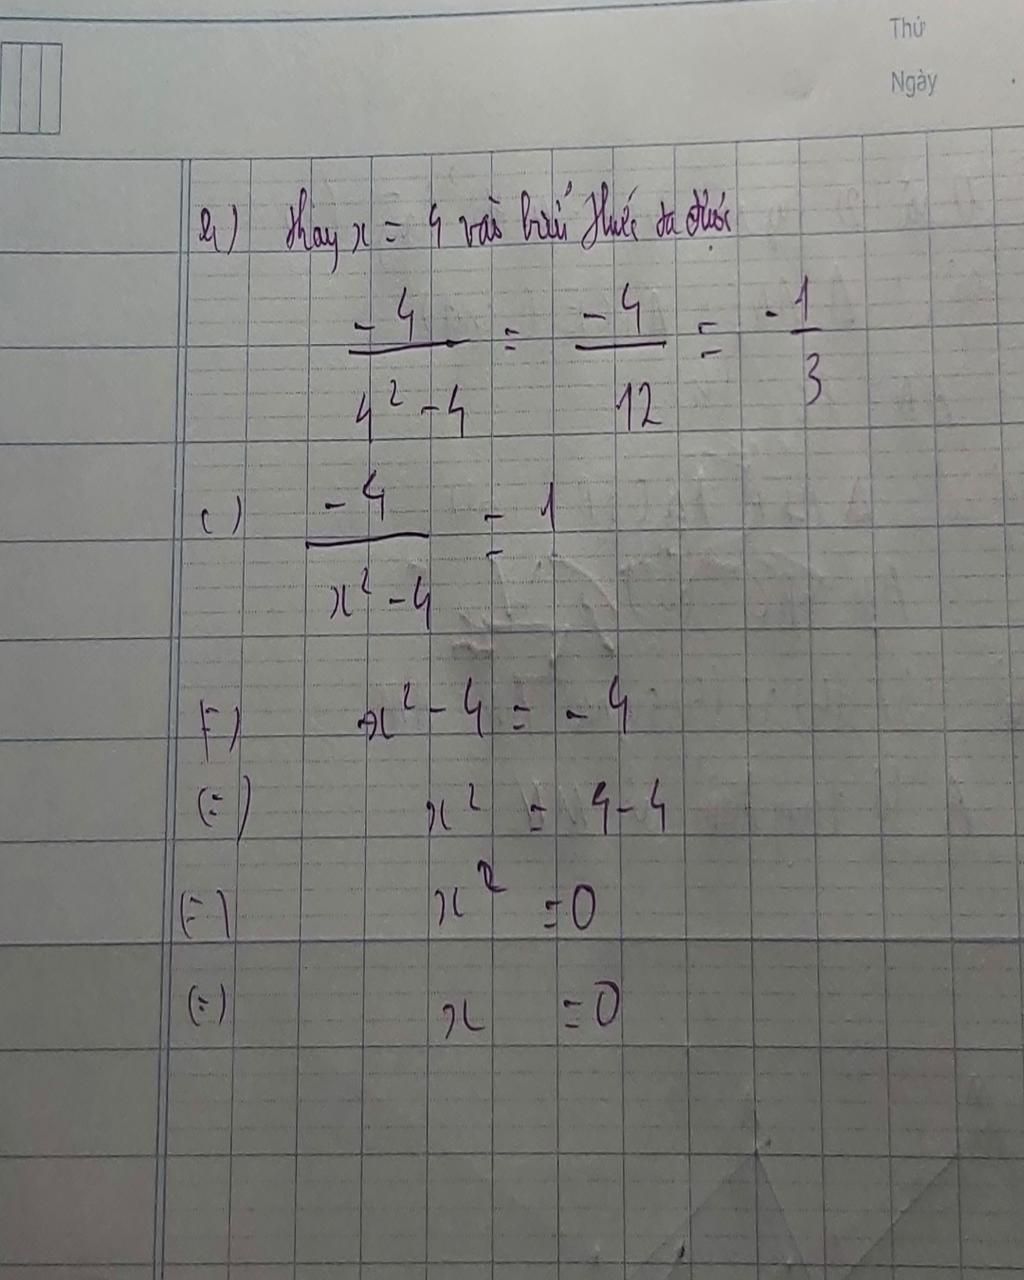 Thứ
Ngày
b) thay x = 4 vào biểu thức ta được
-4/(4² - 4) = -4/12 = -1/3
c) -4/(x² - 4) = 1
(=) x² - 4 = -4
(=) x² = 4 - 4
(=) x² = 0
(=) x = 0